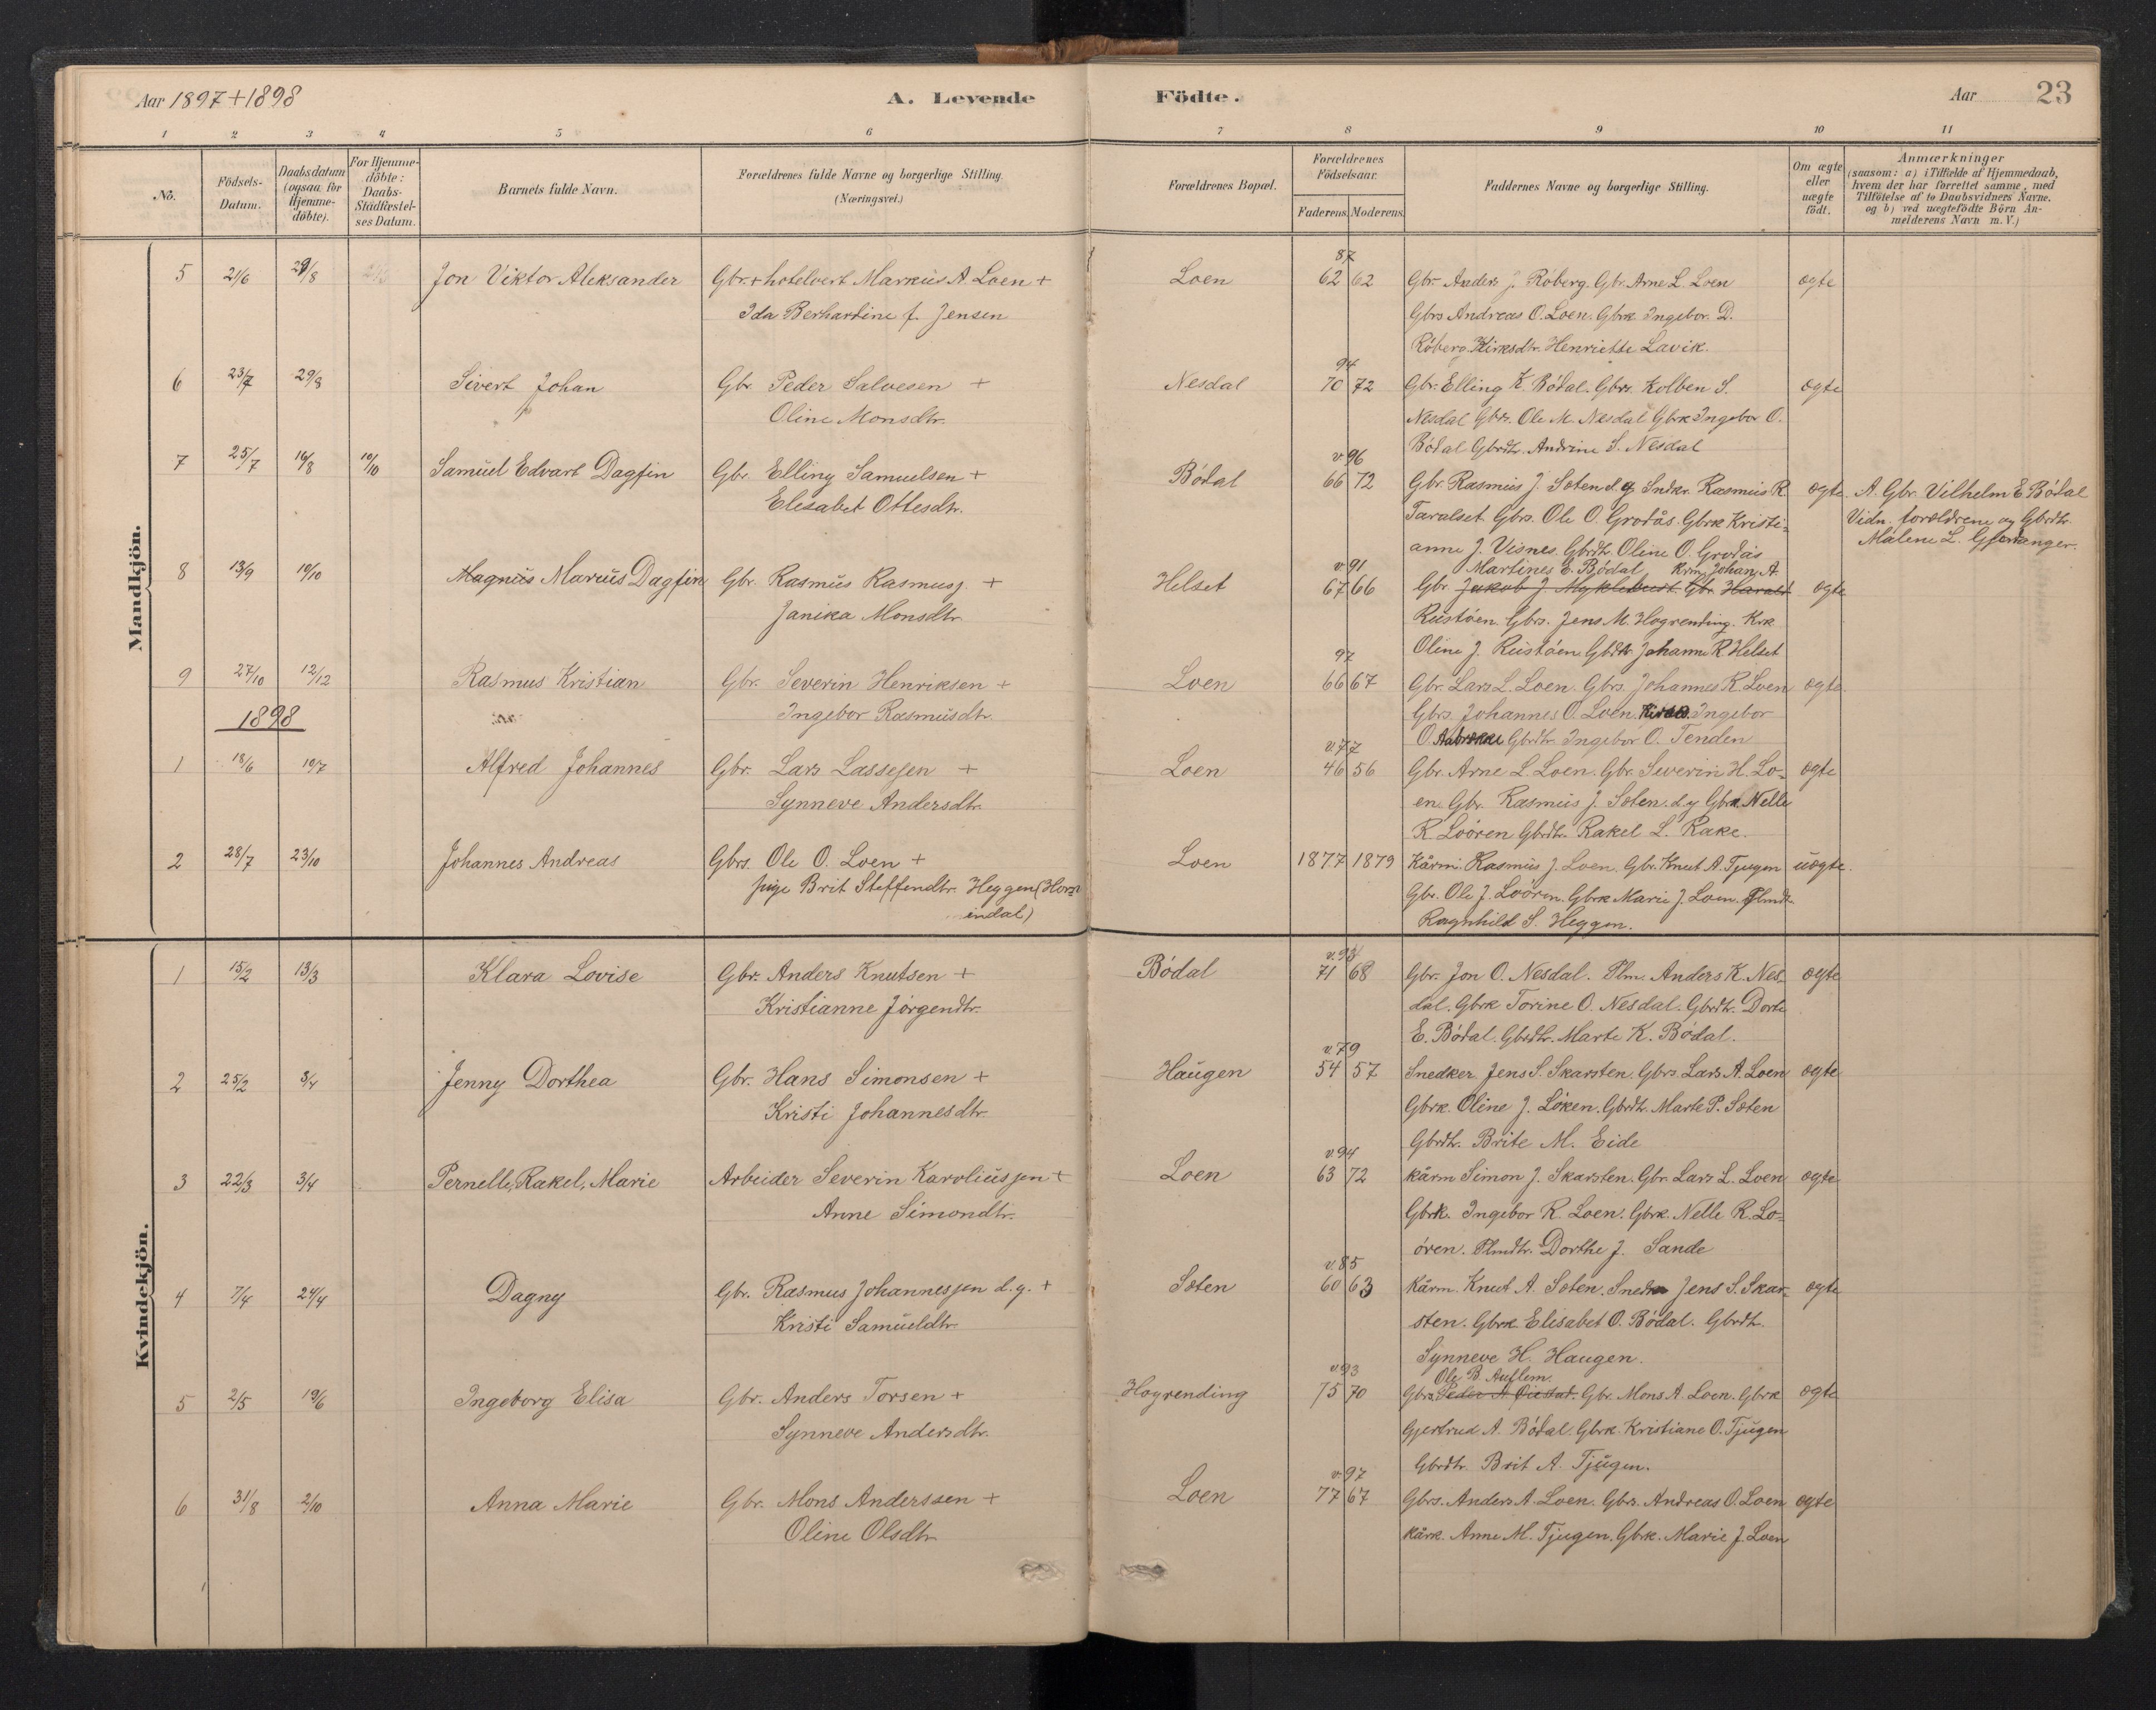 Aar 1897+1898
A. Levende
Födte.
Aar
23
1 2 3 4 5 6 7 8 9 10 11
No.
Födsels-Datum.
Daabsdatum (ogsaa for Hjemme-döbte).
For Hjemme-döbte: Daabs-Stadfæstel-ses Datum.
Barnets fulde Navn.
Forældrenes fulde Navne og borgerlige Stilling.
(Næringsvei.)
Forældrenes Bopæl.
Forældrenes Födselsaar.
Faderens. Moderens.
Faddernes Navne og borgerlige Stilling.
Om ægte eller uægte födt.
Anmærkninger
(saasom: a) i Tilfælde af Hjemmedaab,
hvem der har forrettet samme, med
Tilföielse af to Daabsvidners Navne.
og b) ved uægtefödte Börn An-
melderens Navn m. V.)
Mandkjön.
87
5 21/6 29/8 Jon Viktor Aleksander Gbr. + hotelvert Markus A. Loen + Loen 62 62 Gbr. Anders J. Röberg. Gbr. Arne L. Loen ægte
Ida Berhartine f. Jensen Gbrs Andreas O. Loen. Gbrk Ingebor D.
Röberg. Kirksdtr. Henriette Lavik.
94
6 23/7 29/8 Sivert Johan Gbr. Peder Salvesen + Nesdal 70 72 Gbr. Elling K. Bödal. Gbrs. Kolben S. ægte
Oline Monsdtr. Nesdal Gbrs. Ole M. Nesdal Gbrk Ingebor O.
Bödal Gbrdtr. Andrine S. Nesdal
v 96
7 25/7 16/8 10/10 Samuel Edvart Dagfin Gbr. Elling Samuelsen + Bödal 66 72 Gbr. Rasmus J. Sæten d.y. Snikr. Rasmus R. ægte. A. Gbr. Vilhelm E. Bödal
Elisabet Ottesdtr. Taralset. Gbrs. Ole O. Grodås. Gbrk Kristi- Vidn. forældrene og Gbrdtr.
anne J. Visnes. Gbrdtr. Oline O. Grodås Malene L. Gjeranger.
v. 91 Martines E. Bödal, Krm. Johan A.
8 13/9 10/10 Magnus Marius Dagfin Gbr. Rasmus Rasmusj. + Helset 67 66 Gbr. Jakob J. Myklebust. Gbr. Harald ægte
Janika Monsdtr. Rustöen. Gbrs. Jens M. Hogrending. Krk
Oline J. Rustöen Gbdtr. Johanne R Helset
97
9 27/10 12/12 Rasmus Kristian Gbr. Severin Henriksen + Loen 66 67 Gbr. Lars L. Loen. Gbrs. Johannes R. Loen ægte.
1898 Ingebor Rasmusdtr. Gbrs. Johannes O. Loen. Ingebor
O. Gbrdtr. Ingebor O. Tenden
v. 77
1 18/6 10/7 Alfred Johannes Gbr. Lars Lassesen + Loen 46 56 Gbr. Arne L. Loen. Gbr. Severin H. Lo- ægte
Synneve Andersdtr. en. Gbr. Rasmus J. Sæten. d.y Gbrk. Nelle
R. Loören Gbrdtr. Rakel L. Rake.
2 28/7 23/10 Johannes Andreas Gbrs. Ole O. Loen + Loen 1877 1879 Kårm. Rasmus J. Loen. Gbr. Knut A. Tjugen uægte.
pige Brit Steffendtr. Heggen (Horn- Gbr. Ole J. Loören. Gbrk Marie J. Loen. Plmdt.
indal) Ragnhild S. Heggen.
Kvindekjön.
v. 93
1 15/2 13/3 Klara Lovise Gbr. Anders Knutsen + Bödal 71 68 Gbr. Jon O. Nesdal. Plm. Anders K. Nes- ægte
Kristianne Jörgendtr. dal. Gbrk Torine O. Nesdal. Gbrdtr. Dorte
E. Bödal. Gbrdtr. Marte K. Bödal.
v. 79
2 25/2 3/4 Jenny Dorthea Gbr. Hans Simonsen + Haugen 54 57 Snedker Jens S. Skarsten. Gbrs. Lars A. Loen ægte
Kristi Johannesdtr. Gbrk. Oline J. Löken. Gbrdtr. Marte P. Sæten
Gbrdtr. Brite M. Eide
v 94
3 22/3 3/4 Pernelle, Rakel, Marie Arbeider Severin Karoliussen + Loen 63 72 kårm Simon J. Skarsten. Gbr. Lars L. Loen ægte
Anne Simondtr. Gbrk. Ingebor R. Loen. Gbrk. Nelle R. Lo-
ören. Plmdtr. Dorthe J. Sande
v. 85
4 7/4 24/4 Dagny Gbr. Rasmus Johannessen d.y. + Sæten 60 63 Kårm. Knut A. Sæten. Jens S. Skar- ægte
Kristi Samueldtr. sten. Gbrk. Elisabet O. Bödal. Gbrdtr.
Synneve H. Haugen.
v 93 Ole B. Auflem.
5 2/5 19/6 Ingeborg Elisa Gbr. Anders Torsen + Hogrending 75 70 Gbrs. Peder A. Gbr. Mons A. Loen. Gbrk ægte
Synneve Andersdtr. Gjertrud A. Bödal. Gbrk. Kristiane O. Tjugen
Gbrdtr. Brit A. Tjugen.
v. 97
6 31/8 2/10 Anna Marie Gbr. Mons Anderssen + Loen 77 67 Gbrs. Anders A. Loen. Gbrs. Andreas O. Loen ægte
Oline Olsdtr. kårk. Anne M. Tjugen. Gbrk. Marie J. Loen